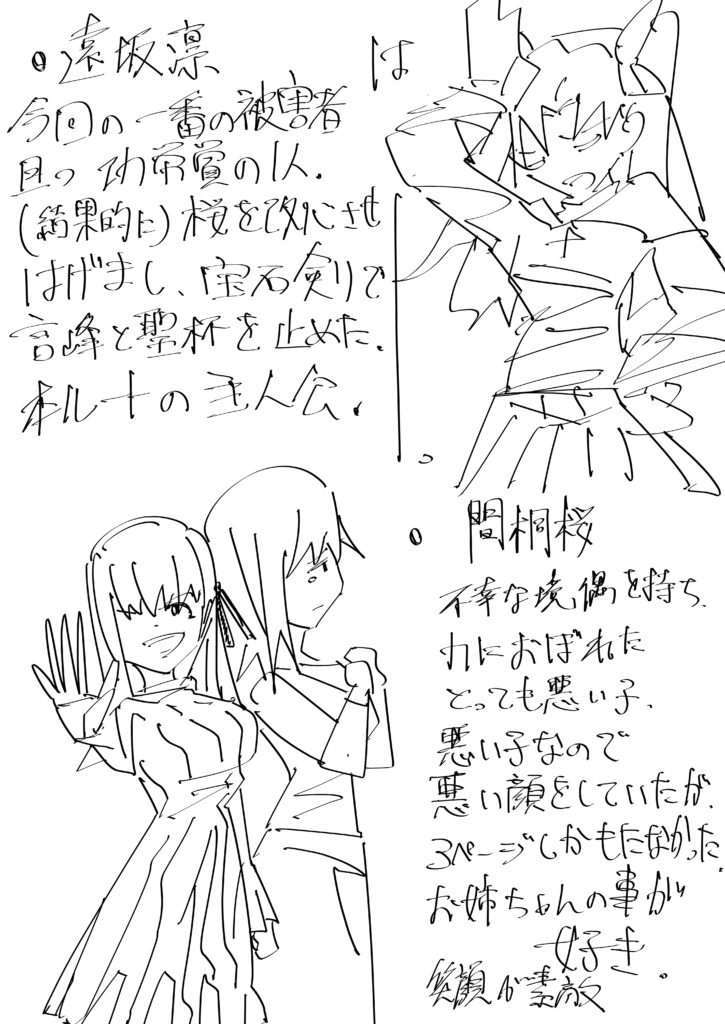 遠坂凛
は
今回の一番の被害者
且つ功労賞の1人.
(結果的に)桜を改心させ
はげまし、宝石剣で
言峰と聖杯を止めた.
本ルートの主人公.
。
間桐桜
不幸な境偶を持ち、
力におぼれた
とっても悪い子.
悪い子なので
悪い顔をしていたが、
3ページしかもたなかった.
お姉ちゃんの事が
好き。
笑顔が素敵